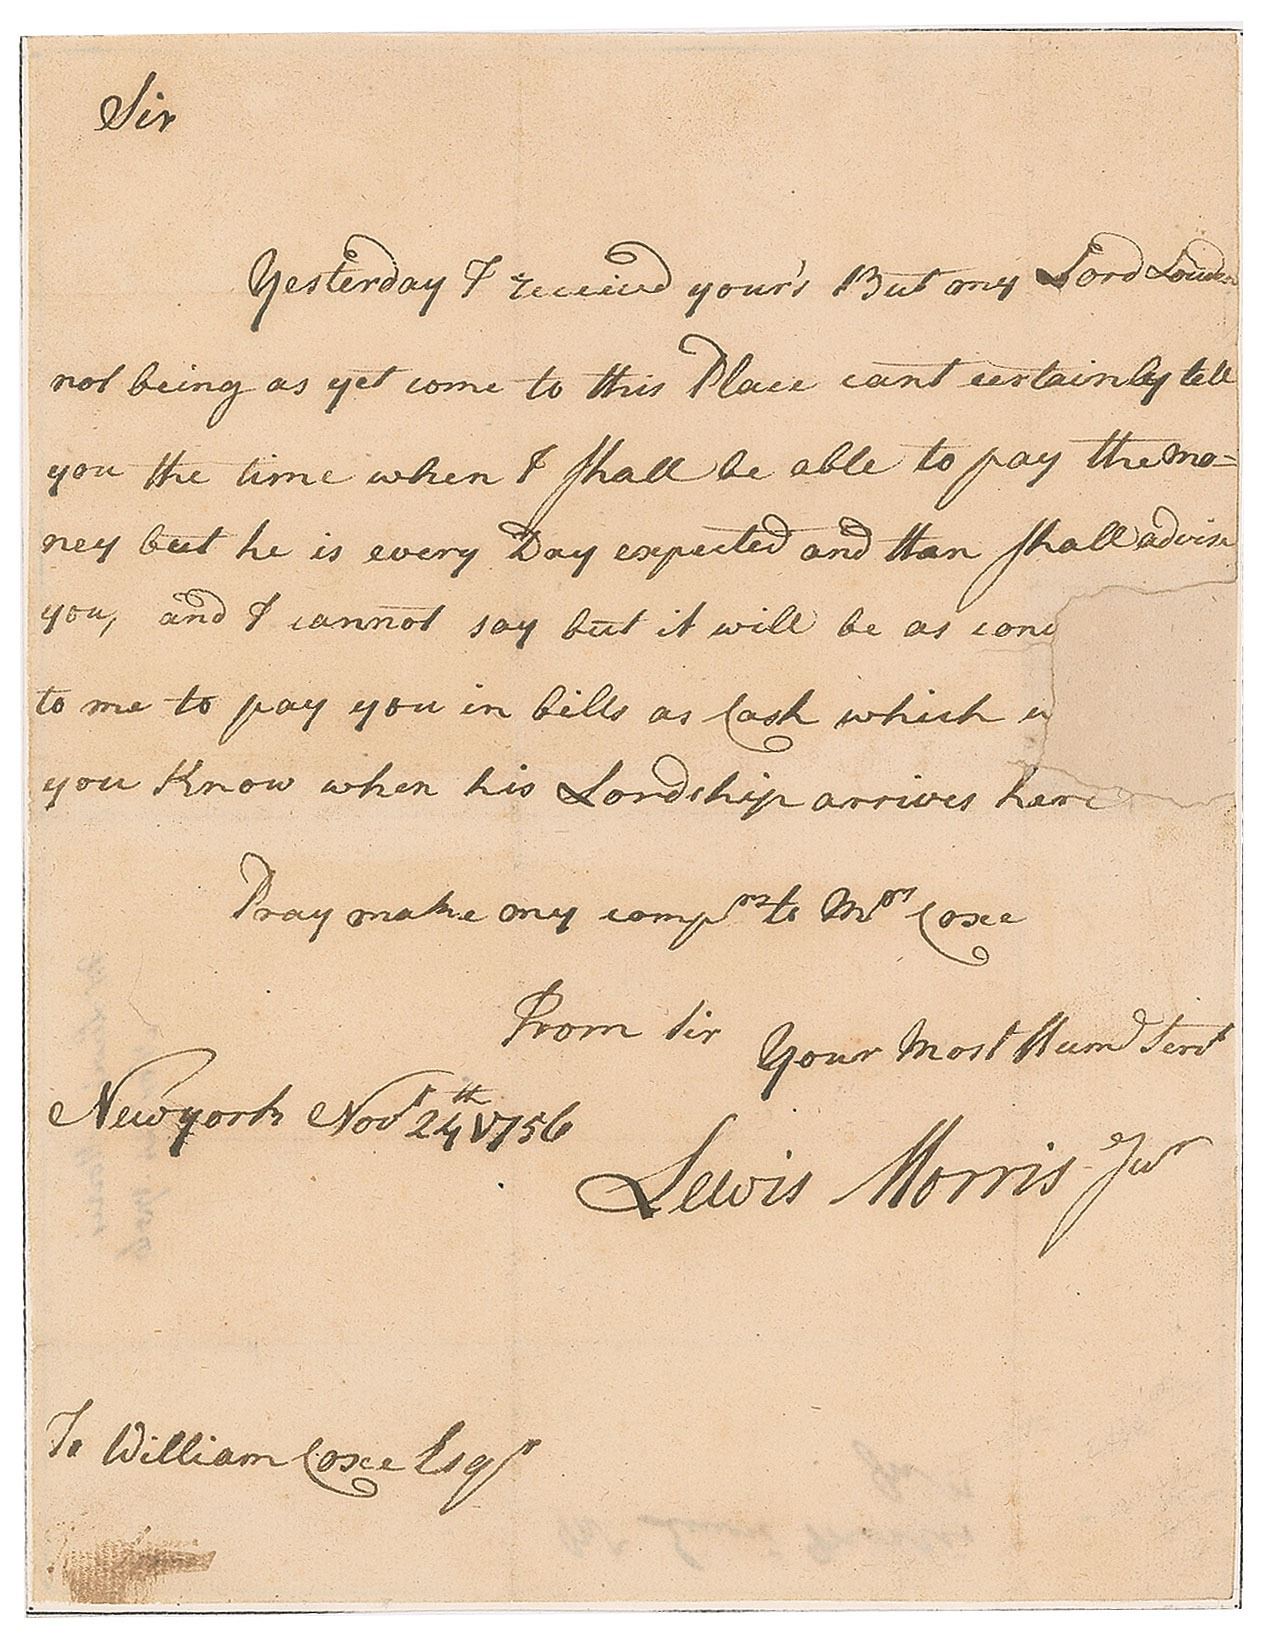 Sir
Yesterday I received your's But my Lord Loudon
not being as yet come to this Place cant certainly tell
you the time when I shall be able to pay the mo=
ney but he is every Day expected and than shall advise
you, and I cannot say but it will be as conv
to me to pay you in bills as Cash which
you Know when his Lordship arrives here
Pray make my compts to Mrs Coxe
From Sir Your Most Humd Servt
Newyork Novr 24th 1756
Lewis Morris Junr
To William Coxe Esqr